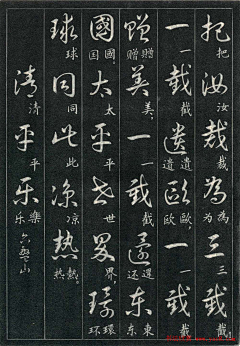 把汝裁為三截
把汝裁为三截
一截遺歐一截
一截遺遗歐欧一截
贈美一截還东
贈赠美,一截還还東东
國太平世界環
國国,太平世界,環环
球同此凉熱
球同此凉熱热。
清平乐
清平樂乐
六盤山